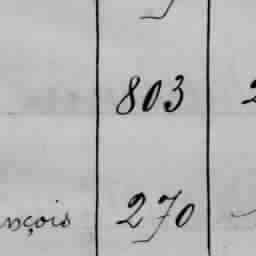 803
nçois 270